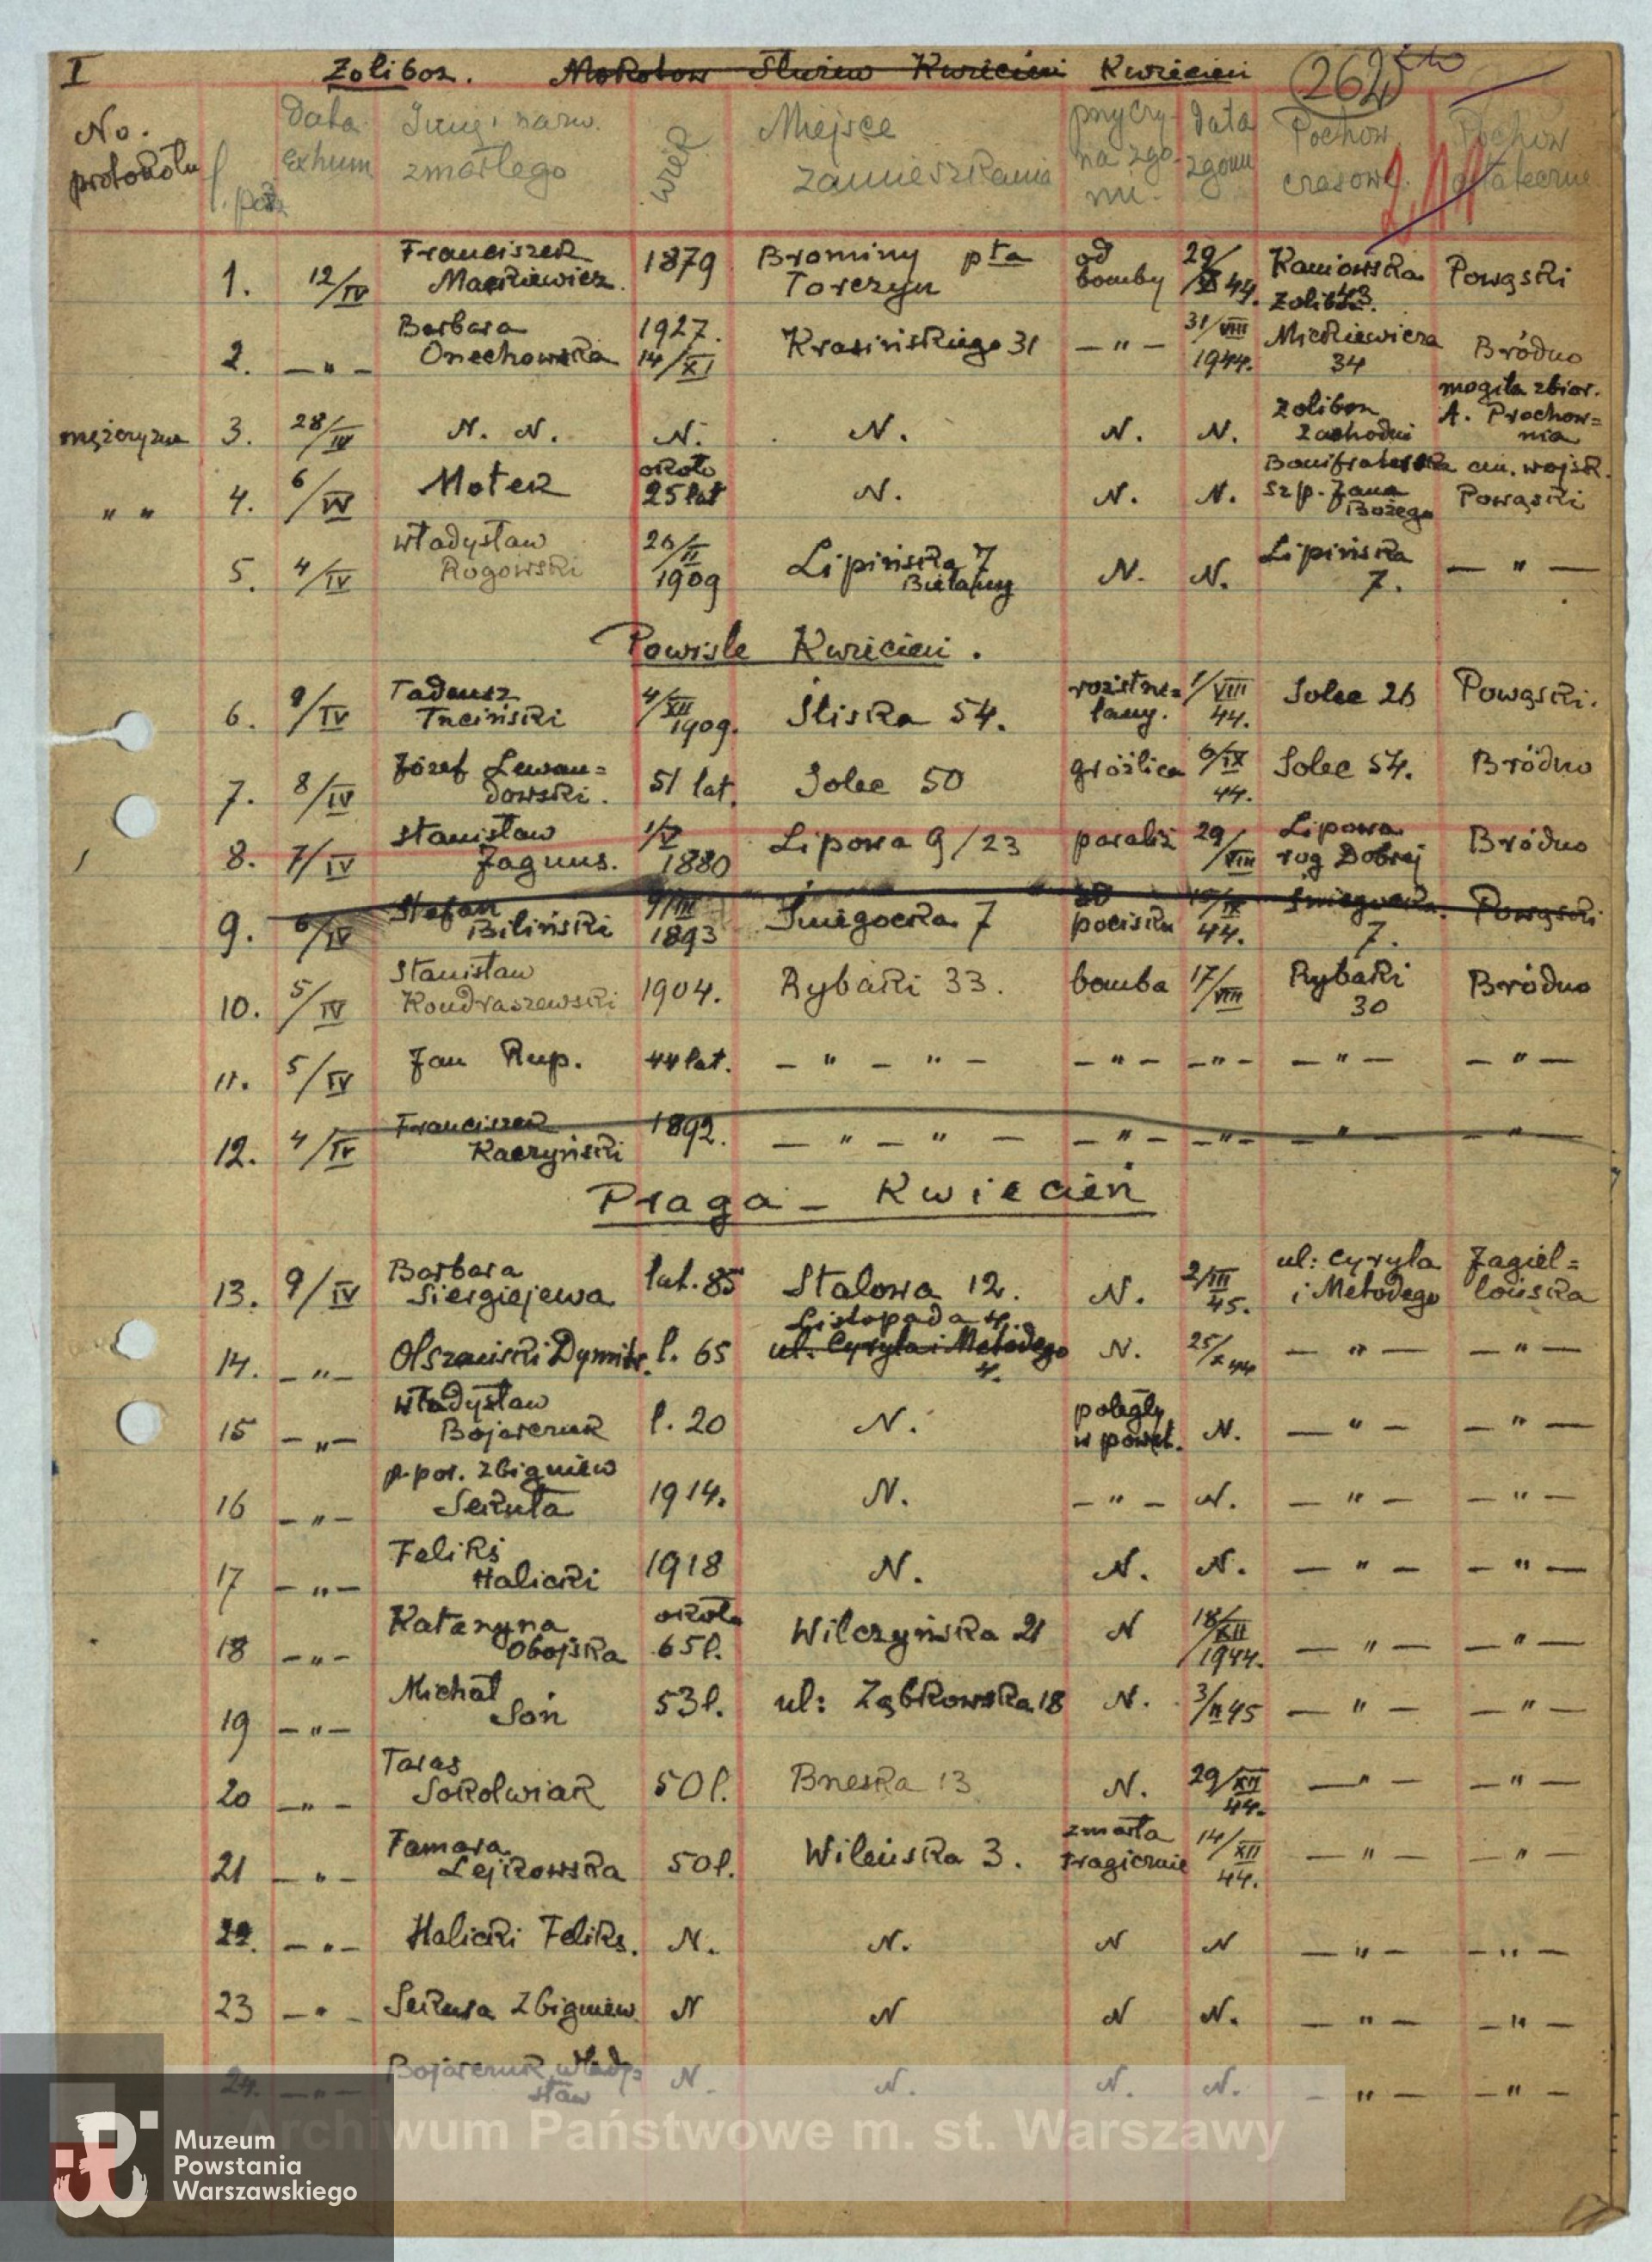 I Zolibor. Mokotow Służew Kwiecień Kwiecień 262
No. protokółu l. porz Data Exhum Imię i nazw. zmarłego wiek Miejsce zamieszkania przyczyna zgonu. data zgonu Pochow czasowe. Pochow ostateczne
1. 12/IV Franciszek Maćkiewicz. 1879 Brominy pta Torczyn od bomby 29/ 44. Kaniowska Zolibor. Powąski
2. — " — Barbara Orzechowska 1927. 14/XI Krasińskiego 31 — " — 31/VIII 1944. Mickiewicza 34 Bródno
mężczyzna 3. 28/IV N. N. N. N. N. N. Zolibor zachodni mogiła zbior. A. Prochow=nia
" " 4. 6/IV Motek około 25 lat N. N. N. Bonifraterska Szp. Jana Bożego cm. wojsk. Powąski
5. 4/IV Władysław Rogowski 26/II 1909 Lipińska 7 Bielany N. N. Lipińska 7. — " —
Powisle Kwiecień.
6. 9/IV Tadeusz Trciński 4/XII 1909. Śliska 54. rozstrze=lany. 1/VIII 44. Solec 26 Powąski.
7. 8/IV Józef Lewan=dowski. 51 lat. Solec 50 gruźlica 6/IX 44. Solec 54. Bródno
8. 7/IV Stanisław Jagnus. 1/V 1880 Lipowa 9/23 paraliż 29/VIII Lipowa rog Dobrej Bródno
9. 6/IV Stefan Biliński 9/III 1893 Śniegocka 7 od pocisku 15/IX 44. Śniegocka. 7. Powąski
10. 5/IV Stanisław Kondraszewski 1904. Rybaki 33. bomba 17/VIII Rybaki 30 Bródno
11. 5/IV Jan Rup. 44 lat. — " — " — — " — — " — — " — — " —
12. 4/IV Franciszek Kaczyński 1892. — " — " — — " — — " — — " — — " —
Praga — Kwiecień
13. 9/IV Barbara Siergiejewa lat. 85 Stalowa 12. N. 2/III 45. ul: Cyryla i Metodego Jagiel=lońska
14. — " — Olszański Dymitr. l. 65 Listopada 4. ul. Cyryla i Metodego 4. N. 25/X 44 — " — — " —
15 — " — Władysław Bojarczuk l. 20 N. poległy w powst. N. — " — — " —
16 — " — p-por. Zbigniew Sekuła 1914. N. — " — N. — " — — " —
17 — " — Feliks Halicki 1918 N. N. N. — " — — " —
18 — " — Katarzyna Obojska około 65 l. Wilczyńska 21 N 18/XII 1944. — " — — " —
19 — " — Michał Soń 53 l. ul: Ząbkowska 18 N. 3/II 45 — " — — " —
20 — " — Taras Sokolwiak 50 l. Brzeska 13 N. 29/XII 44. — " — — " —
21 — " — Tamara Lejkowska 50 l. Wileńska 3. zmarła tragicznie 14/XII 44. — " — — " —
22. — " — Halicki Feliks. N. N. N N — " — — " —
23 — " — Sekuła Zbigniew N N N N. — " — — " —
24. — " — Bojarczuk Włady=sław N. N. N. N. — " — — " —
Archiwum Państwowe m. st. Warszawy
Muzeum
Powstania
Warszawskiego